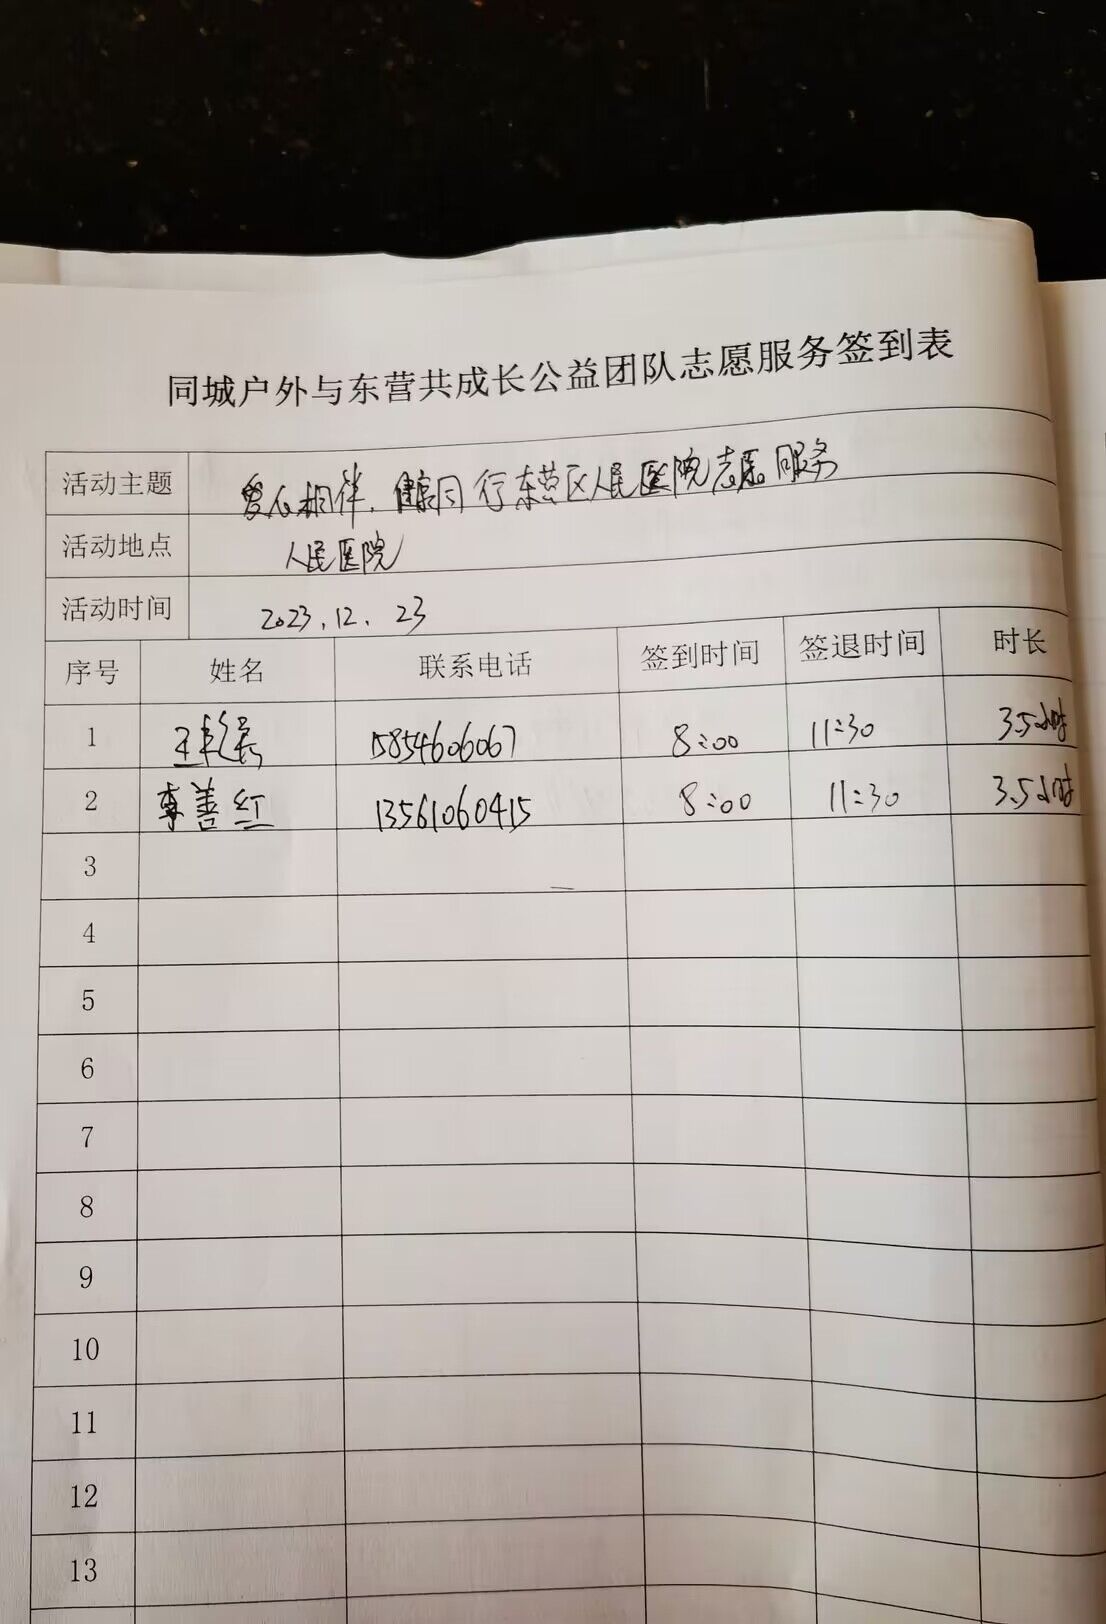 同城户外与东营共成长公益团队志愿服务签到表
活动主题 爱心相伴，健康同行东营区人民医院志愿服务
活动地点 人民医院
活动时间 2023.12.23
序号 姓名 联系电话 签到时间 签退时间 时长
1 王 15854606067 8:00 11:30 3.5小时
2 李善红 13561060415 8:00 11:30 3.5小时
3
4
5
6
7
8
9
10
11
12
13